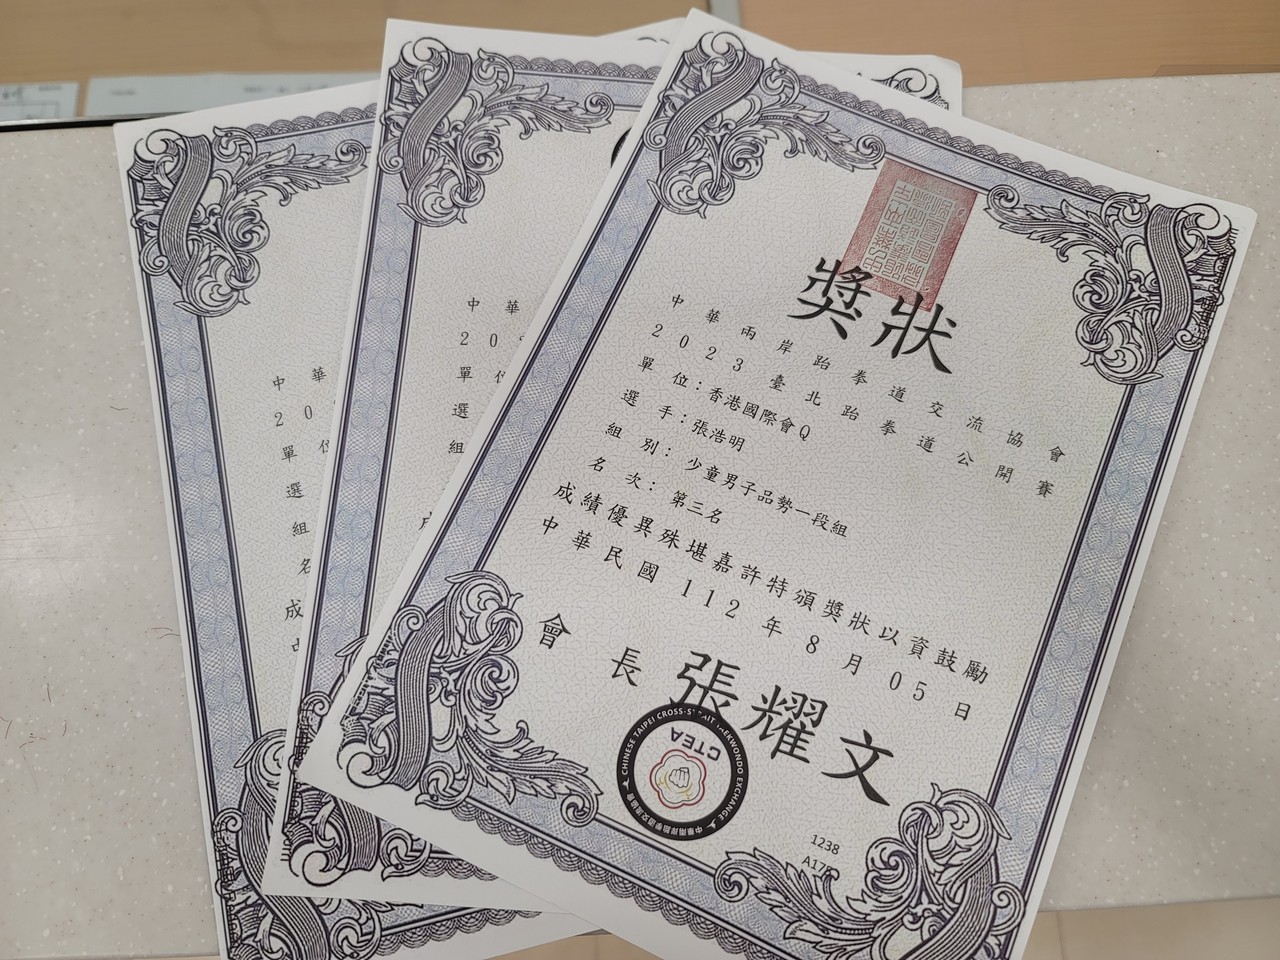 獎狀
中華兩岸跆拳道交流協會
2023臺北跆拳道公開賽
單位：香港國際會Q
選手：張浩明
組別：少童男子品勢一段組
名次：第三名
成績優異殊堪嘉許特頒獎狀以資鼓勵
中華民國112年8月05日
會長 張耀文
CHINESE TAIPEI CROSS-STRAIT TAEKWONDO EXCHANGE
CTEA
中華兩岸跆拳道交流協會
1238
中華
單位
選
組
中華
單位
選
組
名
成